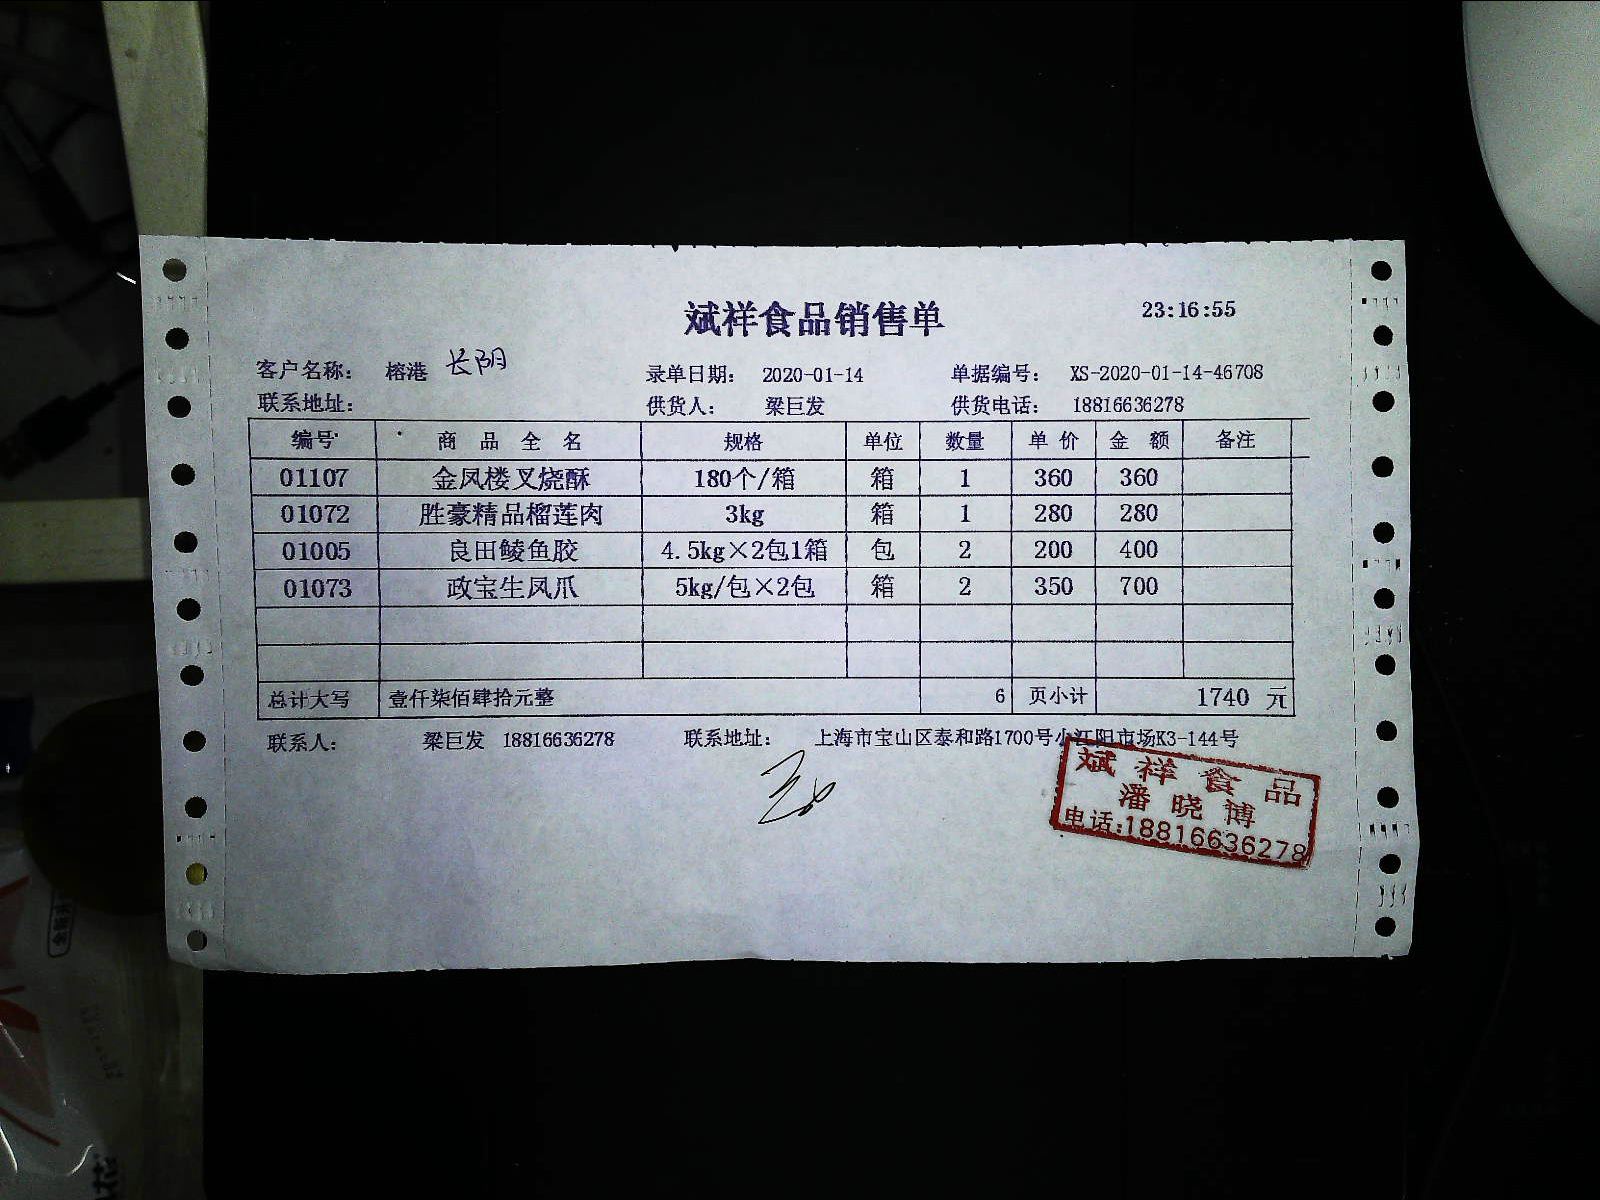 斌祥食品销售单 23:16:55
客户名称： 榕港 长阴 录单日期： 2020-01-14 单据编号： XS-2020-01-14-46708
联系地址： 供货人： 梁巨发 供货电话： 18816636278
编号 商品全名 规格 单位 数量 单价 金额 备注
01107 金凤楼叉烧酥 180个/箱 箱 1 360 360
01072 胜豪精品榴莲肉 3kg 箱 1 280 280
01005 良田鲮鱼胶 4.5kg×2包1箱 包 2 200 400
01073 政宝生凤爪 5kg/包×2包 箱 2 350 700
总计大写 壹仟柒佰肆拾元整 6 页小计 1740 元
联系人： 梁巨发 18816636278 联系地址： 上海市宝山区泰和路1700号小江阳市场K3-144号
斌祥食品
潘晓博
电话:18816636278